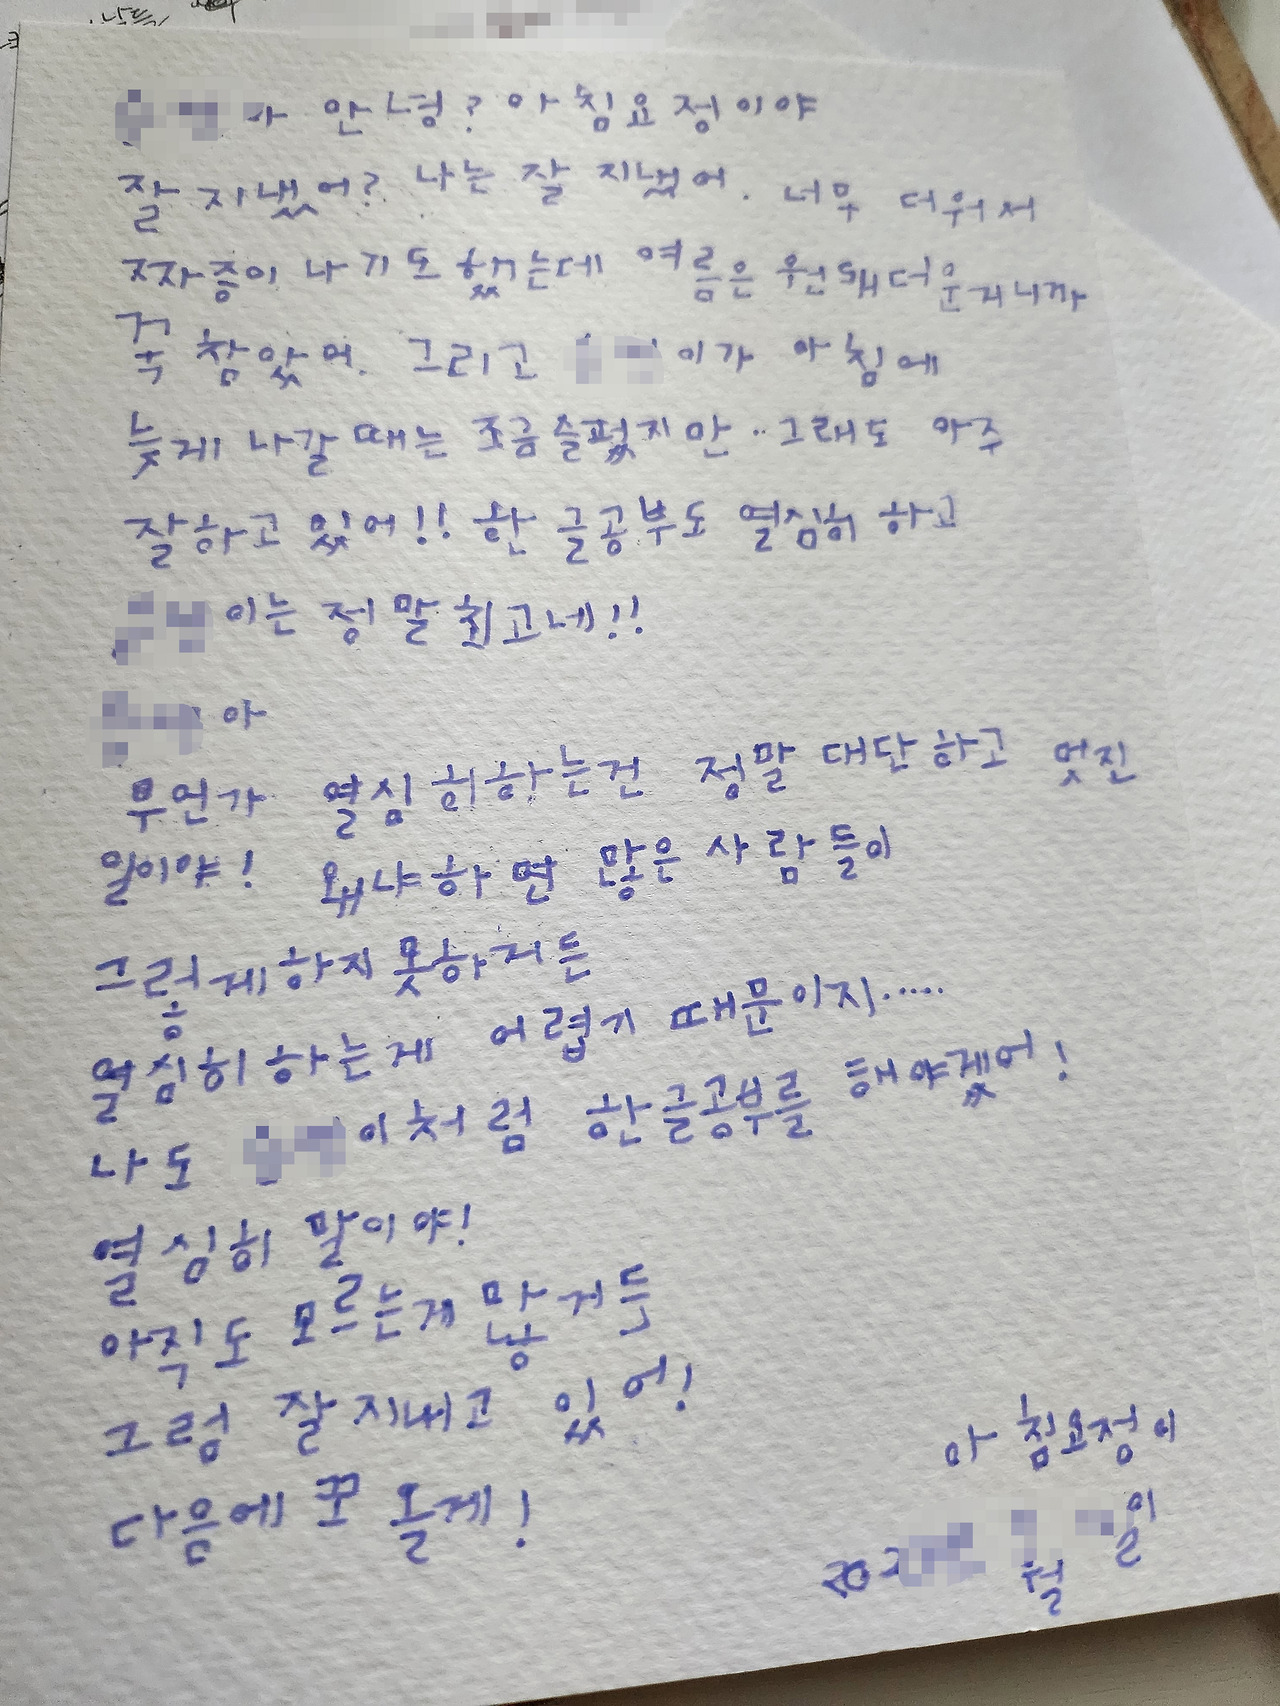 아 안녕? 아침요정이야
잘 지냈어? 나는 잘 지냈어. 너무 더워서
짜증이 나기도 했는데 여름은 원래더운거니까
꾹 참았어. 그리고 이가 아침에
늦게 나갈 때는 조금슬펐지만..그래도 아주
잘하고 있어!! 한글공부도 열심히 하고
이는 정말최고네!!
아
무언가 열심히하는건 정말 대단하고 멋진
일이야! 왜냐하면 많은 사람들이
그렇게하지못하거든
열심히하는게 어렵기 때문이지.....
나도 이처럼 한글공부를 해야겠어!
열심히 말이야!
아직도 모르는게 많거든
그럼 잘지내고 있어!
다음에 또 올게!
아침요정이
월 일